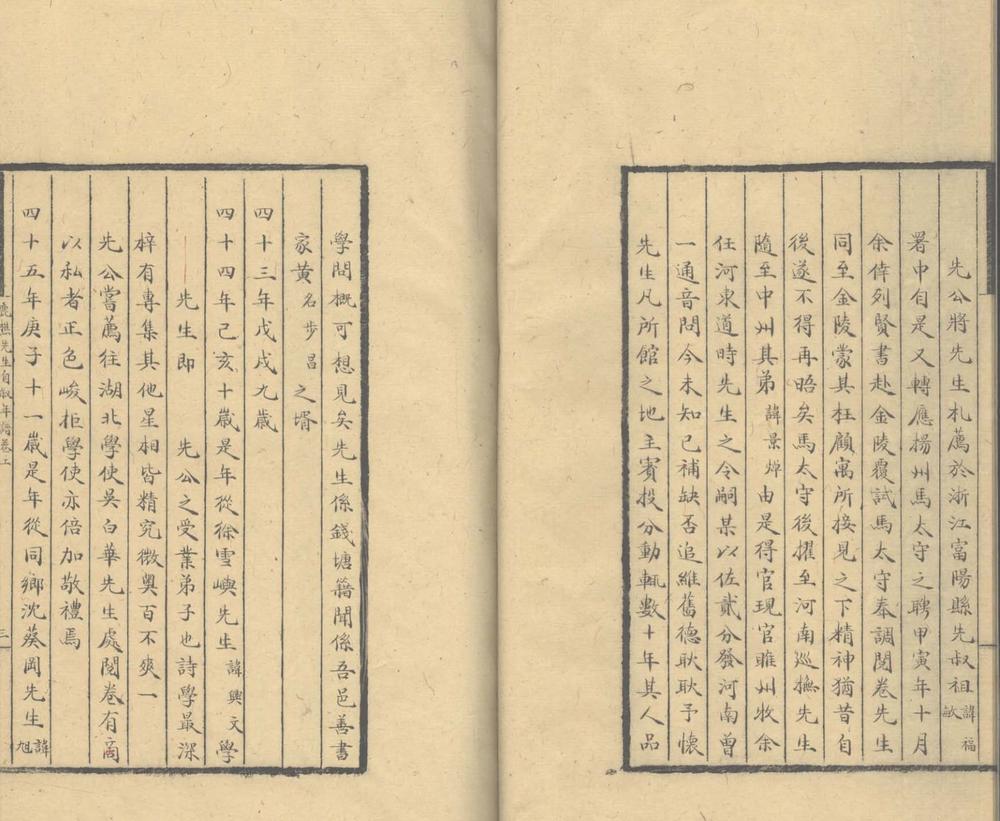 先公將先生札薦於浙江富陽縣先叔祖諱福敏
署中自是又轉應揚州馬太守之聘甲寅年十月
余倖列賢書赴金陵覆試馬太守奉調閱卷先生
同至金陵蒙其枉顧寓所接見之下精神猶昔自
後遂不得再晤矣馬太守後擢至河南巡撫先生
隨至中州其弟諱景焯由是得官現官睢州牧余
任河東道時先生之令嗣某以佐貳分發河南曾
一通音問今未知已補缺否追維舊德耿耿予懷
先生凡所館之地主賓投分動輒數十年其人品
學問概可想見矣先生係錢塘籍聞係吾邑善書
家黃名步昌之壻
四十三年戊戌九歲
四十四年己亥十歲是年從徐雪嶼先生諱興文學
先生即 先公之受業弟子也詩學最深
梓有專集其他星相皆精究微奧百不爽一
先公嘗薦往湖北學使吳白華先生處閱卷有商
以私者正色峻拒學使亦倍加敬禮焉
四十五年庚子十一歲是年從同鄉沈葵岡先生諱旭
樵先生自敘年譜卷上
三